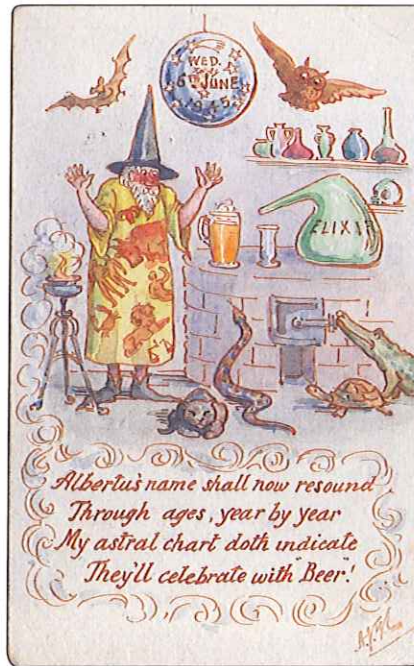 WED.
6TH JUNE
1945
ELIXIR
Albertus name shall now resound
Through ages, year by year
My astral chart doth indicate
They'll celebrate with "Beer"!